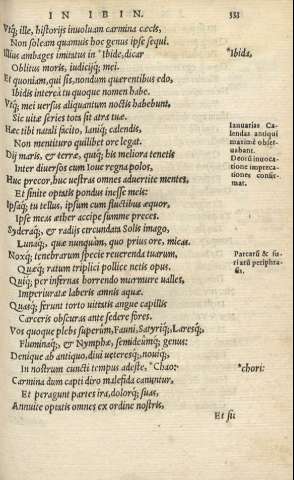 IN IBIN. 333
Vtq́; ille, historijs inuoluam carmina cæcis,
Non soleam quamuis hoc genus ipse sequi.
Illius ambages imitatus in *Ibide, dicar
*Ibida,
Oblitus moris, iudicijq́; mei.
Et quoniam, qui sis, nondum quærentibus edo,
Ibidis interea tu quoque nomen habe.
Vtq́; mei versus aliquantum noctis habebunt,
Sic vitæ series tota sit atra tuæ.
Hæc tibi natali facito, Ianiq́; calendis,
Ianuarias Ca-
lendas antiqui
maximè obser-
uabant.
Non mentituro quilibet ore legat.
Dij maris, & terræ, quiq́; his meliora tenetis
Deorū inuoca-
tione impreca-
tiones confir-
mat.
Inter diuersos cum Ioue regna polos,
Huc precor, huc vestras omnes aduertite mentes,
Et sinite optatis pondus inesse meis:
Ipsaq́; tu tellus, ipsum cum fluctibus æquor,
Ipse meas æther accipe summe preces.
Syderaq́;, & radijs circundata Solis imago,
Lunaq́;, quæ nunquàm, quo prius ore, micas.
Noxq́; tenebrarum specie reuerenda tuarum,
Parcarū & fu-
riarū periphra-
sis.
Quæq́; ratum triplici pollice netis opus.
Quiq́; per infernas horrendo murmure valles,
Imperiuratæ laberis amnis aquæ.
Quasq́; ferunt torto vittatis angue capillis
Carceris obscuras ante sedere fores.
Vos quoque plebs superûm, Fauni, Satyriq́;, Laresq́;,
Fluminaq́;, & Nymphæ, semideûmq́; genus:
Denique ab antiquo, diui veteresq́;, nouiq́;,
In nostrum cuncti tempus adeste, *Chao:
*chori:
Carmina dum capti diro malefida canuntur,
Et peragunt partes ira, dolorq́; suas,
Annuite optatis omnes ex ordine nostris,
Et sit